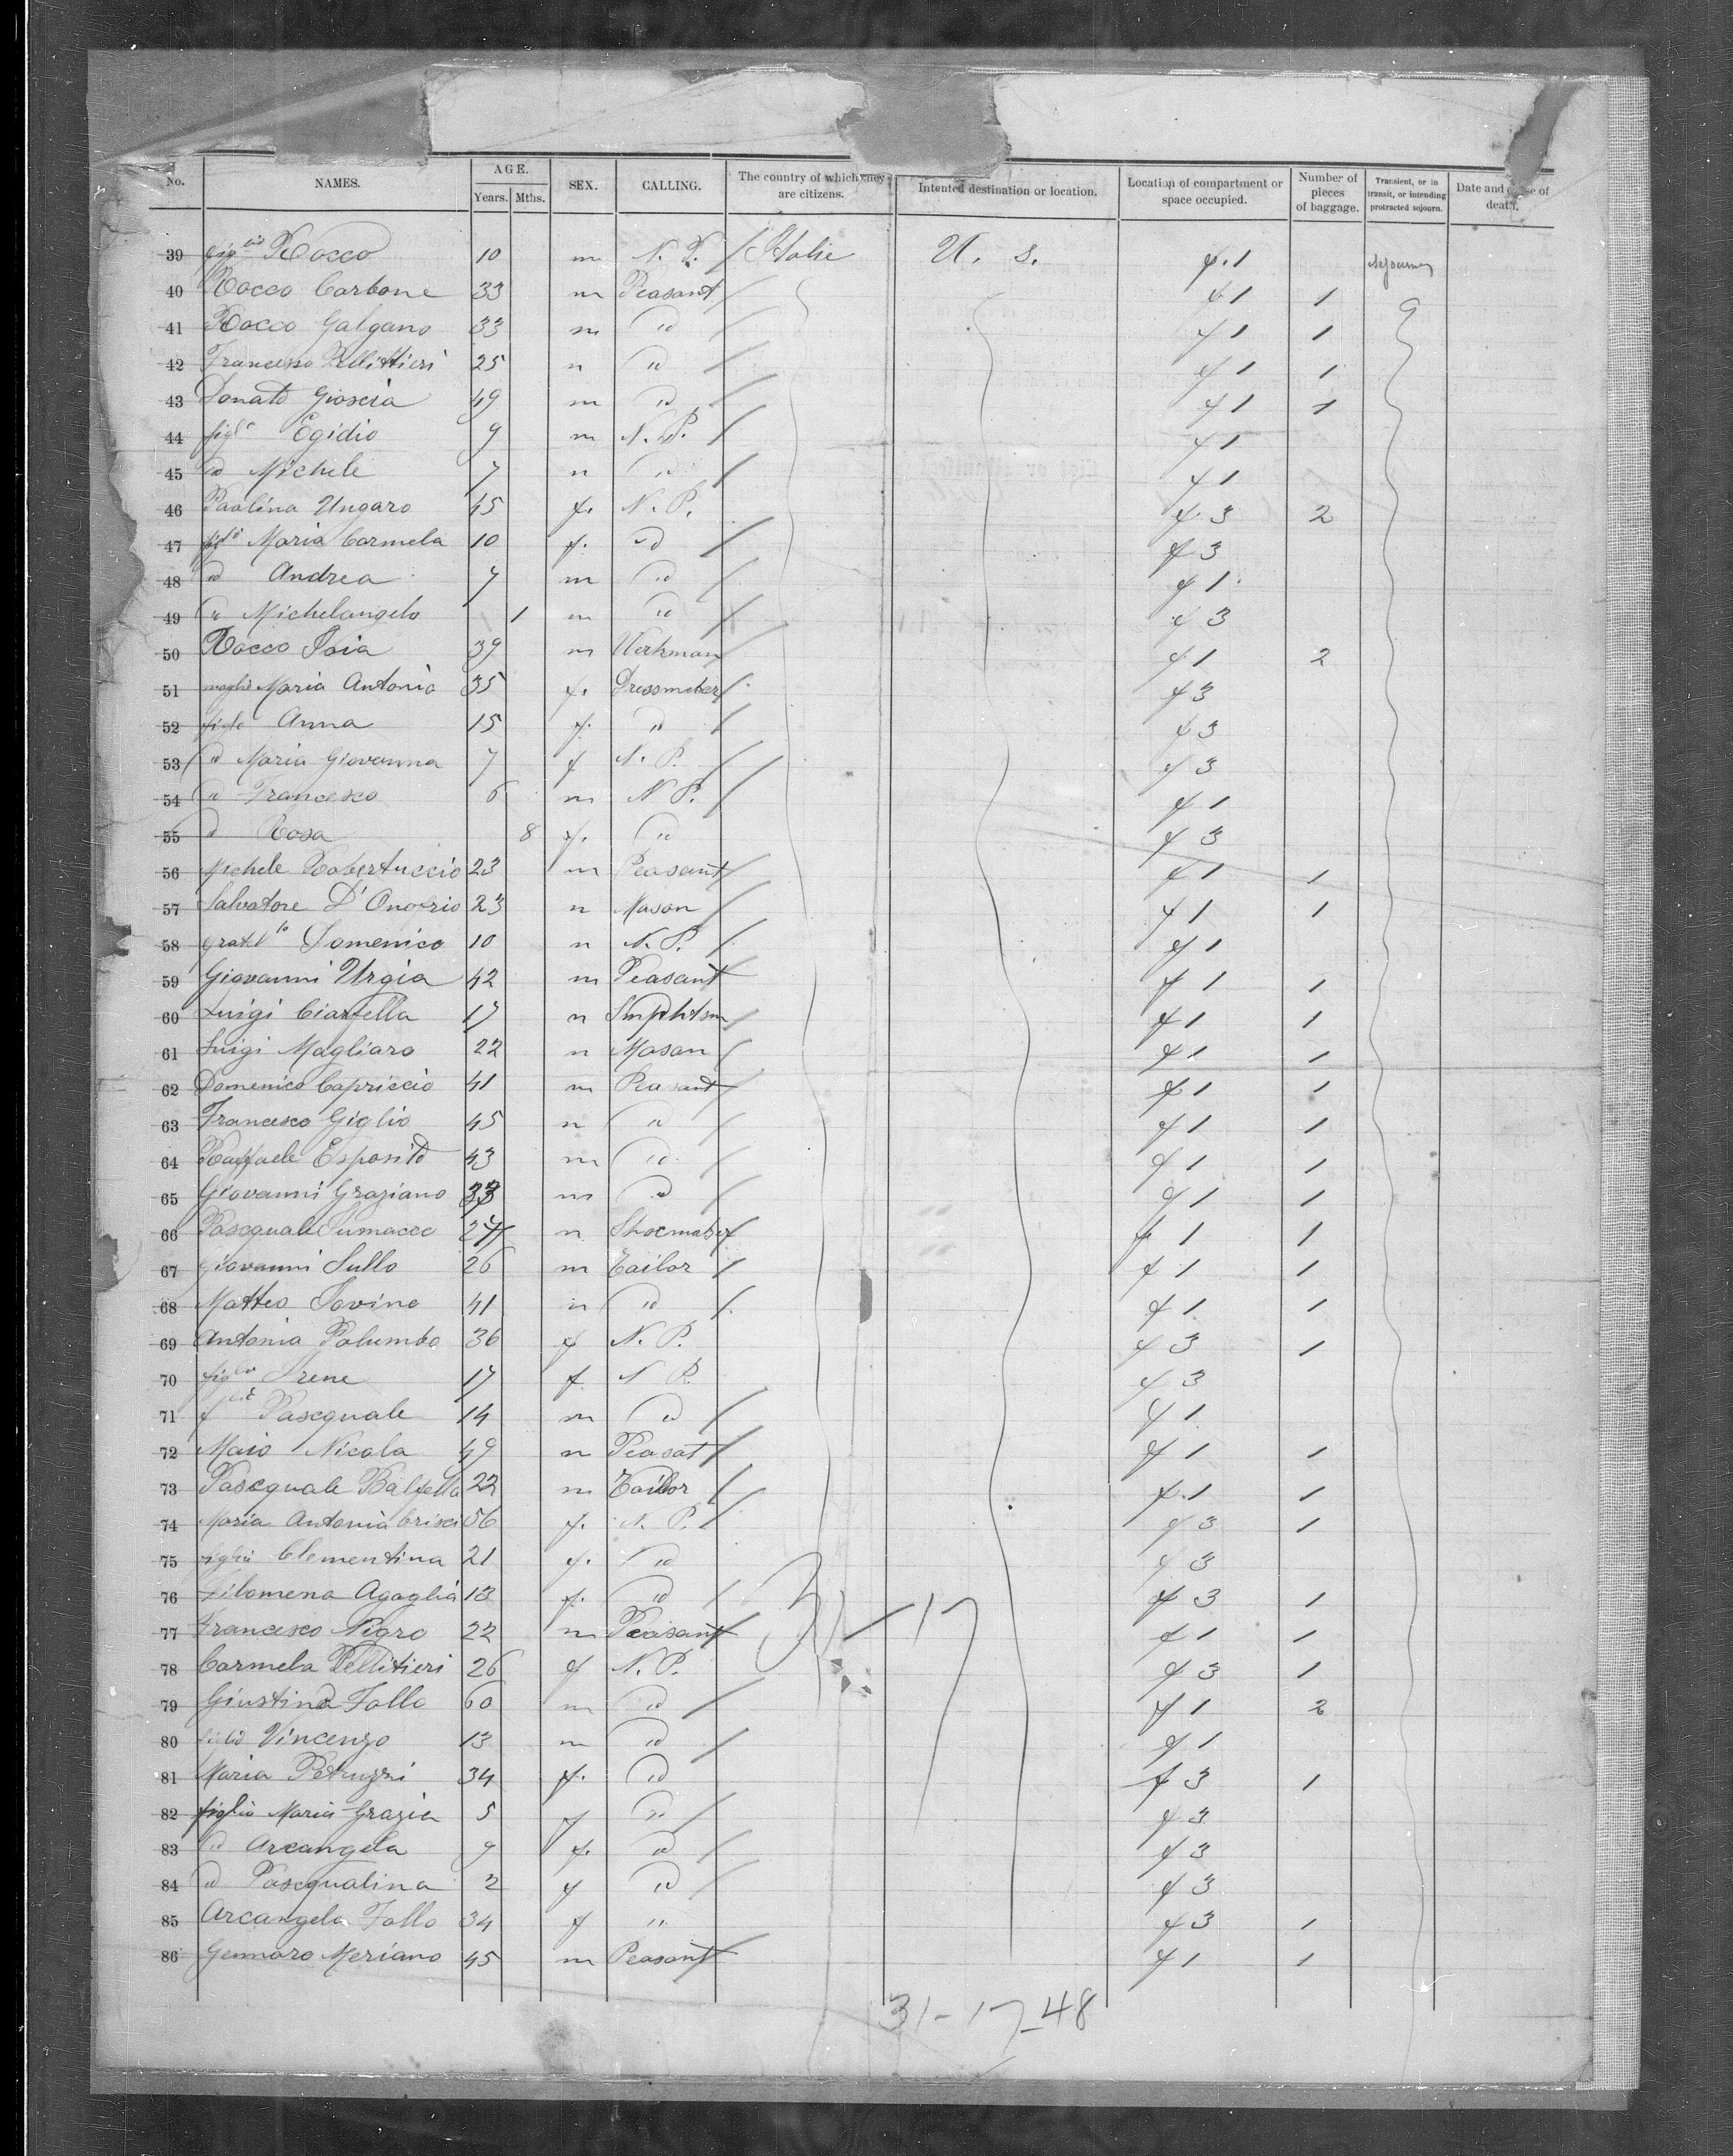 No. NAMES. AGE. Years. Mths. SEX. CALLING. The country of which they are citizens. Intented destination or location. Location of compartment or space occupied. Number of pieces of baggage. Transient, or in transit, or intending protracted sojourn. Date and of death.
39 figlio Rocco 10 m N. P. / Italie U. S. 4.1 Sojourney
40 Rocco Carbone 33 m Peasant / 41 1
41 Rocco Galgano 33 m id / 41 1
42 Francesco Pellittieri 25 n id / 41 1
43 Donato Gioscia 49 m id / 41 1
44 figlo Egidio 9 m N. P. / 41
45 id Michele 7 n id / 41
46 Paolina Ungaro 45 f. N. P. 4.3 2
47 figlia Maria Carmela 10 f. id / 43
48 id Andrea 7 m id / 41
49 id Michelangelo 1 m id / 43
50 Rocco Ioia 39 m Workman 41 2
51 moglie Maria Antonia 35 f. Dressmcker / 43
52 figle Anna 15 f. id / 43
53 id Maria Giovanna 7 f N. P. / 43
54 id Francesco 6 m N P. / 41
55 id Rosa 8 f. id 43
56 Michele Robertuccio 23 m Peasant / 41 1
57 Salvatore D'Onofrio 23 n Mason / 41 1
58 Domenico 10 n N. P. / 41
59 Giovanni Urgia 42 m Peasant 41 1
60 Luigi Ciarfella 17 n / 41 1
61 Luigi Magliaro 22 n Mason / 41 1
62 Domenico Capriccio 41 m Peasant / 41 1
63 Francesco Giglio 45 n id / 41 1
64 Raffaele Esposito 43 m id / 41 1
65 Giovanni Graziano 33 m id / 41 1
66 Pascquale n Shoemaker / 41 1
67 Giovanni Sullo 26 m Tailor / 41 1
68 Matteo Iovine 41 n id / 41 1
69 Antonia Palumbo 36 f N. P. 43 1
70 figlia Irene 17 f N P. 43
71 Pascquale 14 m id / 41
72 Maio Nicola 49 n Peasat / 41 1
73 Pascquale 22 m Tailor / 4.1 1
74 Maria Antonia Crisci 56 f. N. P. / 43 1
75 figlia Clementina 21 f. id 43
76 Filomena Agaglia 13 f. id / 43 1
77 Francesco Nigro 22 m Peasant / 41 1
31-17
78 Carmela Pellitieri 26 f N. P. 43 1
79 Giustino Follo 60 m id / 41 2
80 figlio Vincenzo 13 m id / 41
81 Maria Petruzzi 34 f. id 43 1
82 figlia Maria Grazia 5 f id / 43
83 id Arcangela 9 f. id / 43
84 id Pascqualina 2 f id / 43
85 Arcangela Follo 34 f id 43 1
86 Gennaro Meriano 45 m Peasant 41 1
31-17-48